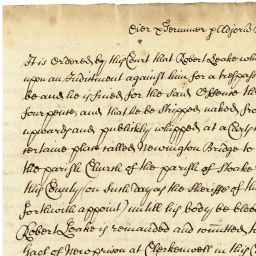 It is Ordered by this Court that Robert Leake who
upon an Indictment against him for a trespass
be and he is fined for the said Offence the
fourpence, and that he be Stripped naked from
upwards and publickly whipped at a Carts
certaine place called Newington Bridge to
the parish Church of the parish of Stoake
this County on such day as the Sheriffe of th
forthwith appoint) untill his body be bloo
Robert Leake is remanded and comitted to
Gaol of New prison at Clerkenwell in this C